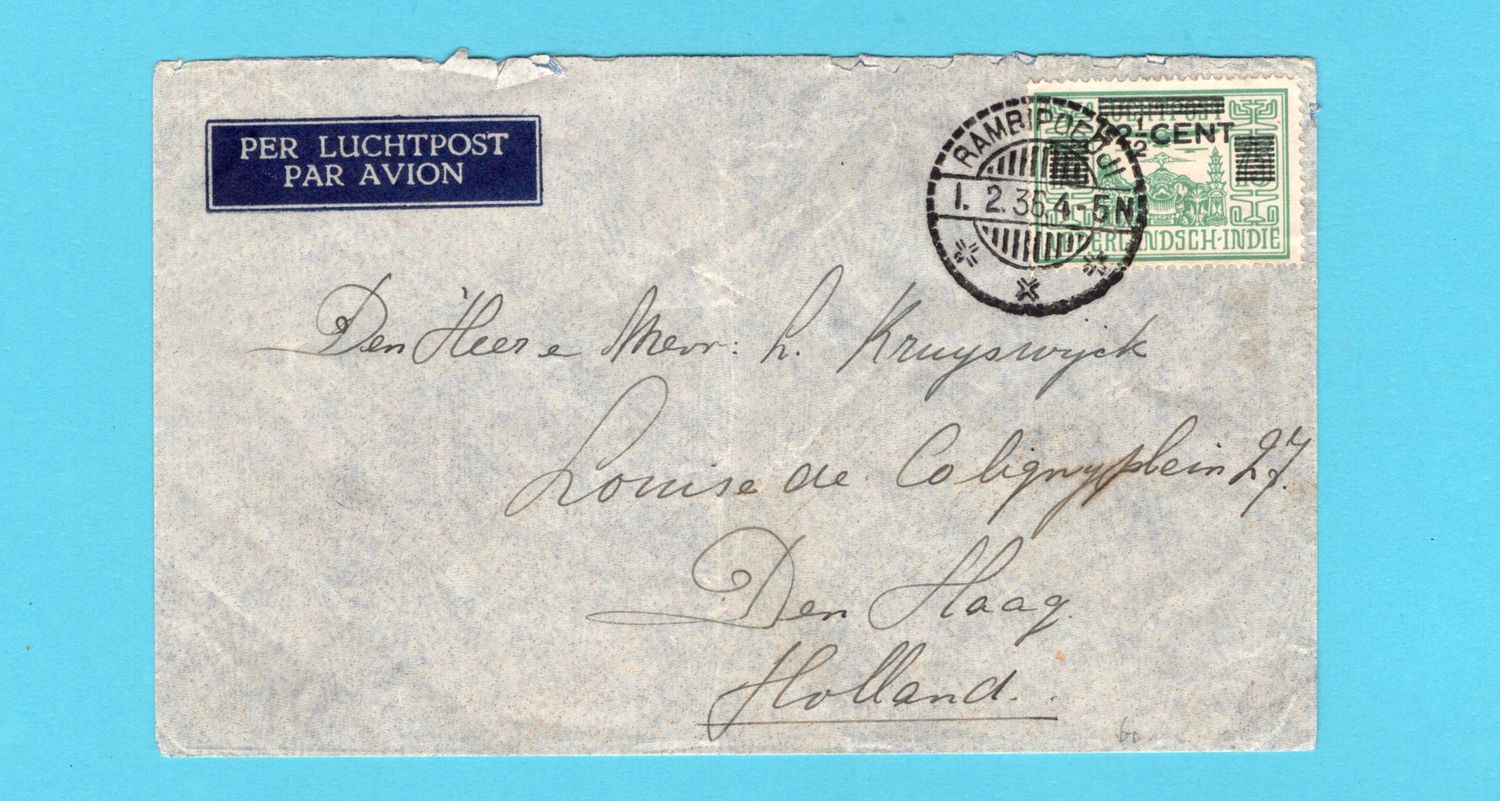 PER LUCHTPOST
PAR AVION
LUCHTPOST
2-CENT
RAMBIPOEDJI
1. 2.36.4-5N
NEDERLANDSCH-INDIE
Den Heer e Mevr: L. Kruyswyck
Louise de Colignyplein 27.
Den Haag.
Holland.